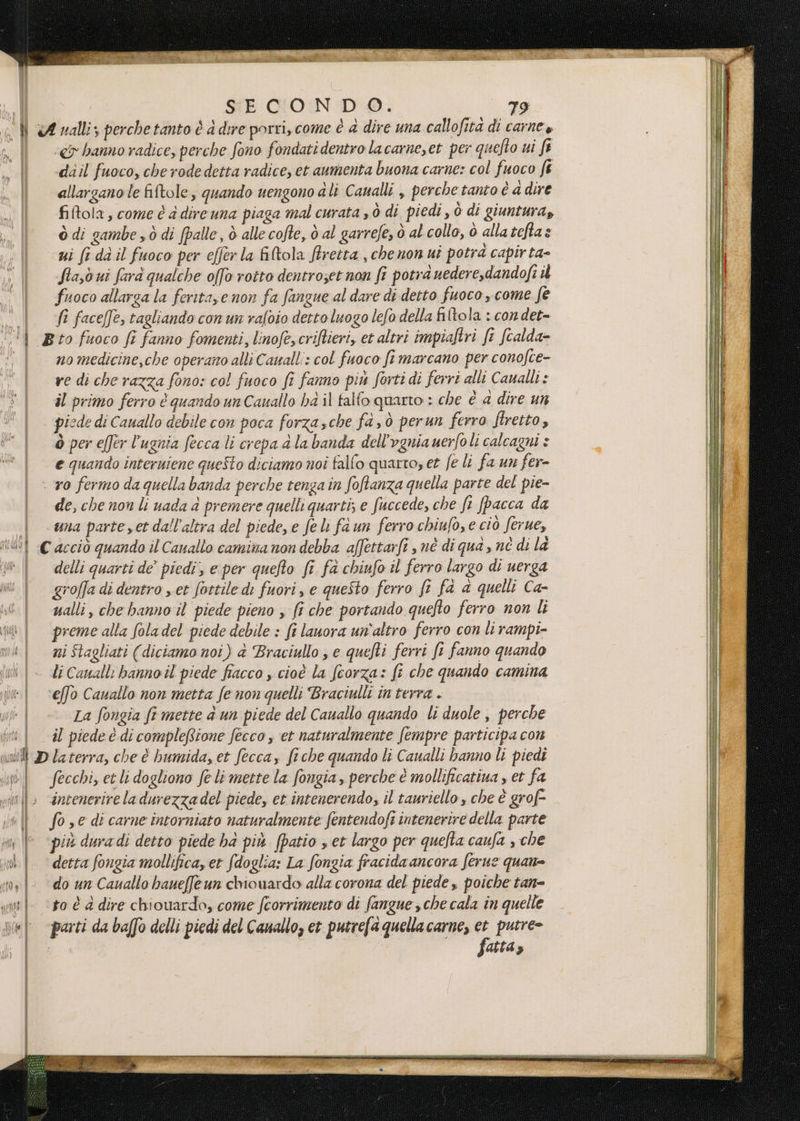 SECONDO. 79
A ualli; perche tanto è à dire porri, come è à dire una callosità di carne,
& hanno radice, perche sono fondati dentro la carne, et per questo ui si
dà il fuoco, che rode detta radice, et aumenta buona carne: col fuoco si
allargano le fistole, quando uengono à li Caualli, perche tanto è à dire
fistola, come è à dire una piaga mal curata, ò di piedi, ò di giuntura,
ò di gambe, ò di spalle, ò alle coste, ò al garrese, ò al collo, ò alla testa:
ui si dà il fuoco per esser la fistola stretta, che non ui potrà capir ta-
sta, ò ui sarà qualche osso rotto dentro, et non si potrà uedere, dandosi il
fuoco allarga la ferita, e non fa sangue al dare di detto fuoco, come se
si facesse, tagliando con un rasoio detto luogo leso della fistola: con det-
B to fuoco si fanno fomenti, linose, cristieri, et altri impiastri si scalda-
no medicine, che operano alli Cauall : col fuoco si marcano per conosce-
re di che razza sono: col fuoco si fanno più sorti di ferri alli Caualli:
il primo ferro è quando un Cauallo hà il falso quarto: che è à dire un
piede di Cauallo debile con poca forza, che fà, ò per un ferro stretto,
ò per esser l'ugnia secca li crepa à la banda dell'vgnia uerso li calcagni:
e quando interuiene questo diciamo noi falso quarto, et se li fa un fer-
ro fermo da quella banda perche tenga in sostanza quella parte del pie-
de, che non li uada à premere quelli quarti; e succede, che si spacca da
una parte, et dall'altra del piede, e se li fà un ferro chiuso, e ciò serue,
C acciò quando il Cauallo camina non debba assettarsi, nè di quà, nè di là
delli quarti de' piedi, e per questo si fà chiuso il ferro largo di uerga
grossa di dentro, et sottile di fuori, e questo ferro si fà à quelli Ca-
ualli, che hanno il piede pieno, si che portando questo ferro non li
preme alla sola del piede debile: si lauora un'altro ferro con li rampi-
ni stagliati (diciamo noi) à Braciullo, e questi ferri si fanno quando
li Caualli hanno il piede fiacco, cioè la scorza: si che quando camina
esso Cauallo non metta se non quelli Braciulli in terra.
La songia si mette à un piede del Cauallo quando li duole, perche
il piede è di complessione secco, et naturalmente sempre participa con
D la terra, che è humida, et secca, si che quando li Caualli hanno li piedi
secchi, et li dogliono se li mette la songia, perche è mollificatiua, et fa
intenerire la durezza del piede, et intenerendo, il tauriello, che è gros-
so, e di carne intorniato naturalmente sentendosi intenerire della parte
più dura di detto piede hà più spatio, et largo per questa causa, che
detta songia mollifica, et sdoglia: La songia fracida ancora serue quan-
do un Cauallo hauesse un chiouardo alla corona del piede, poiche tan-
to è à dire chiouardo, come scorrimento di sangue, che cala in quelle
parti da basso delli piedi del Cauallo, et putrefà quella carne, et putre-
fatta,